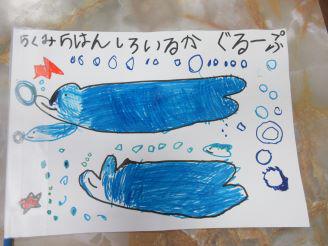 らくみらはん しろいるか ぐるーぷ